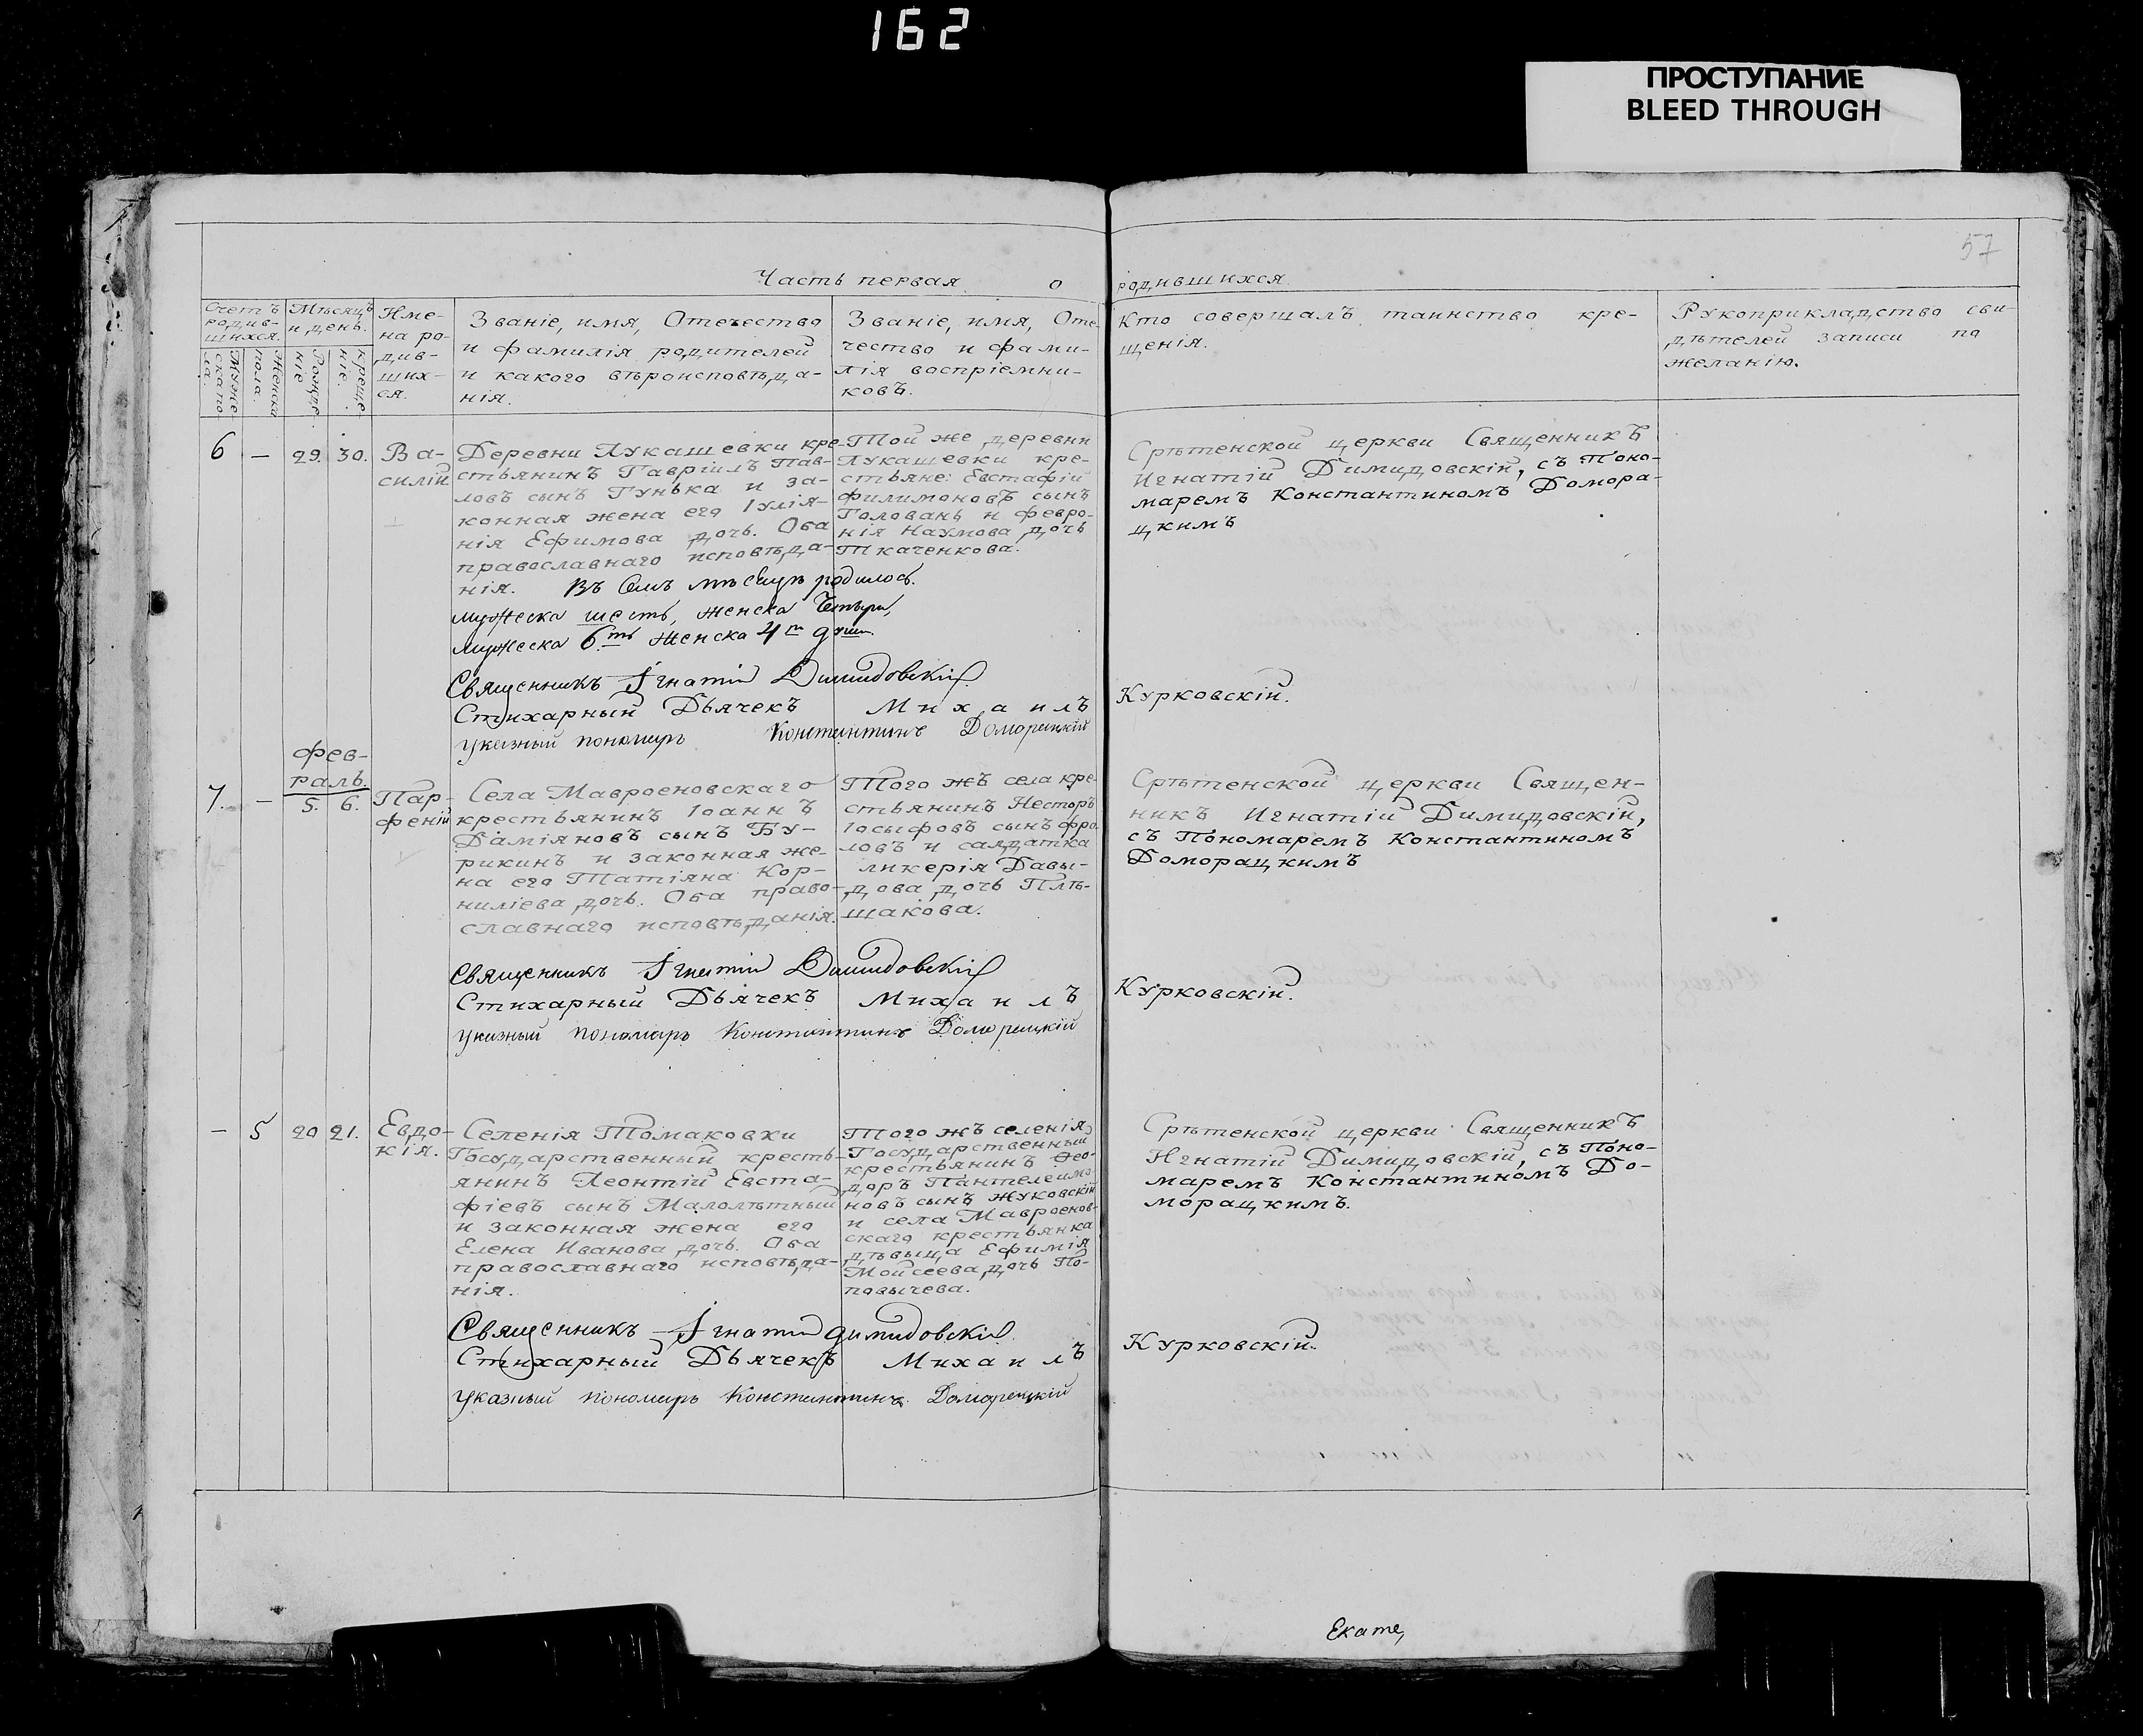 162
ПРОСТУПАНИЕ
BLEED THROUGH
57
Часть первая о родившихся
Счетъ родив-шихся.
Мужеска пола.
Женска пола.
Мѣсяцъ и день.
Рожде-ніе
Креще-ніе.
Име-
на ро-
див-
ших-
ся.
Званіе, имя, Отечество
и фамилія родителей
и какого вѣроисповѣда-
нія.
Званіе, имя, Оте-
чество и фами-
лія воспріемни-
ковъ.
Кто совершалъ таинство кре-
щенія.
Рукоприкладство сви-
дѣтелей записи по
желанію.
6 — 29. 30.
Ва-
силій
Деревни Лукашевки кре-
стьянинъ Гавріилъ Пав-
ловъ сынъ Гунька и за-
конная жена его Іулія-
нія Ефимова дочь. Оба
православнаго исповѣда-
нія.
Той же деревни
Лукашевки кре-
стьяне: Евстафій
Филимоновъ сынъ
Головань и Февро-
нія Наумова дочь
Ткаченкова.
Срѣтенской церкви Священникъ
Игнатій Димидовскій, съ Поно-
маремъ Константиномъ Домора-
цкимъ
Въ семъ мѣсяцѣ родилось
мужеска шесть, женска четыре,
мужеска 6.ть женска 4 душ.
Священникъ Ігнатій Димидовскій
Стихарный Дьячекъ Михаилъ Курковскій.
указный пономарь Константинъ Доморацкій
Фев-
раль.
7. — 5. 6.
Пар-
феній
Села Мавроеновскаго
крестьянинъ Іоаннъ
Даміяновъ сынъ Бу-
рикинъ и законная же-
на его Татіяна Кор-
ниліева дочь. Оба право-
славнаго исповѣданія.
Того жъ села кре-
стьянинъ Несторъ
Іосыфовъ сынъ Фро-
ловъ и салдатка
ликерія Давы-
дова дочь Плѣ-
шакова.
Срѣтенской церкви Священ-
никъ Игнатій Димидовскій,
съ Пономаремъ Константиномъ
Доморацкимъ
Священникъ Ігнатій Димидовскій
Стихарный Дьячекъ Михаилъ Курковскій.
указный пономарь Константинъ Доморацкій
— 5 20 21.
Евдо-
кія.
Селенія Томаковки
Государственный кресть-
янинъ Леонтій Евста-
фіевъ сынъ Малолѣтный
и законная жена его
Елена Иванова дочь. Оба
православнаго исповѣда-
нія.
Того жъ селенія
Государственный
крестьянинъ Ѳео-
доръ Пантелеимо-
новъ сынъ Жуковскій
и села Мавроенов-
скаго крестьянка
дѣвыца Ефимія
Мойсеева дочь По-
повычева.
Срѣтенской церкви Священникъ
Игнатій Димидовскій, съ Поно-
маремъ Константиномъ До-
морацкимъ.
Священникъ Ігнатій Димидовскій
Стихарный Дьячекъ Михаилъ Курковскій.
указный пономарь Константинъ Доморацкій
Екате,